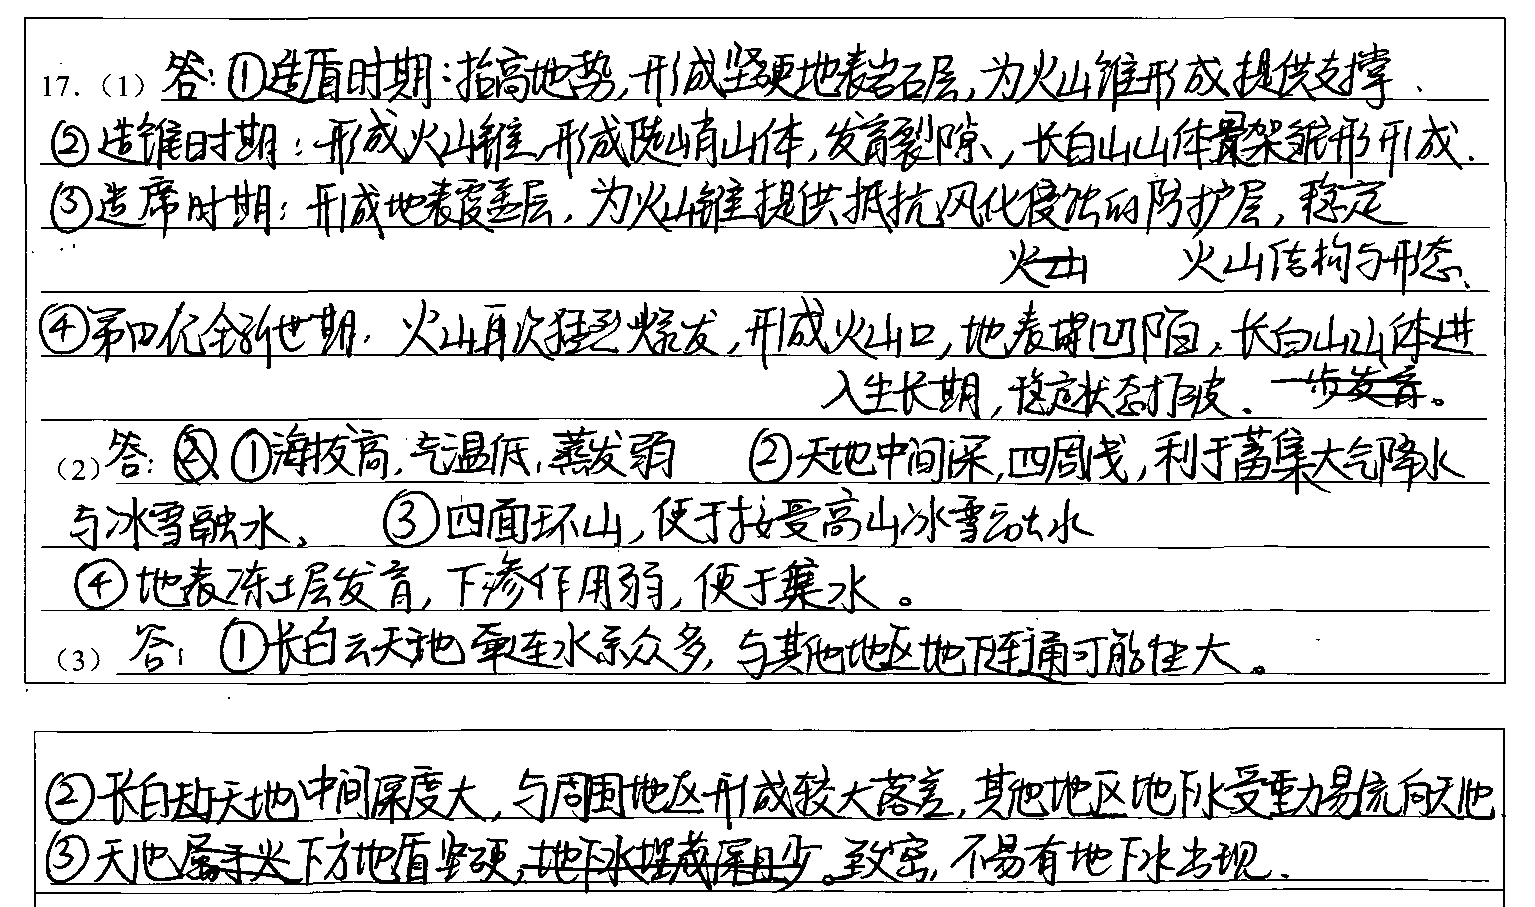 17.（1）答：①造盾时期：抬高地势，形成坚硬地表岩石层，为火山锥形成提供支撑.
②造锥时期：形成火山锥,形成陡峭山体，发育裂隙，长白山山体骨架雏形形成.
③造席时期：形成地表覆盖层，为火山锥提供抵抗风化侵蚀的防护层，稳定
火山 火山结构与形态.
④第四纪全新世期. 火山再次猛烈爆发，形成火山口，地表塌凹陷，长白山山体进
入生长期，稳定状态打破. 一步发育。
（2）答：② ①海拔高，气温低，蒸发弱 ②天池中间深，四周浅，利于蓄集大气降水
与冰雪融水。 ③四面环山，便于接受高山冰雪融水
④地表冻土层发育，下渗作用弱，便于集水。
（3）答：①长白云天池牵连水系众多，与其他地区地下连通可能性大。
②长白山天池中间深度大，与周围地区形成较大落差，其他地区地下水受重力易流向天池
③天池属于火下方地盾坚硬，地下水埋藏深且少。致密，不易有地下水出现.